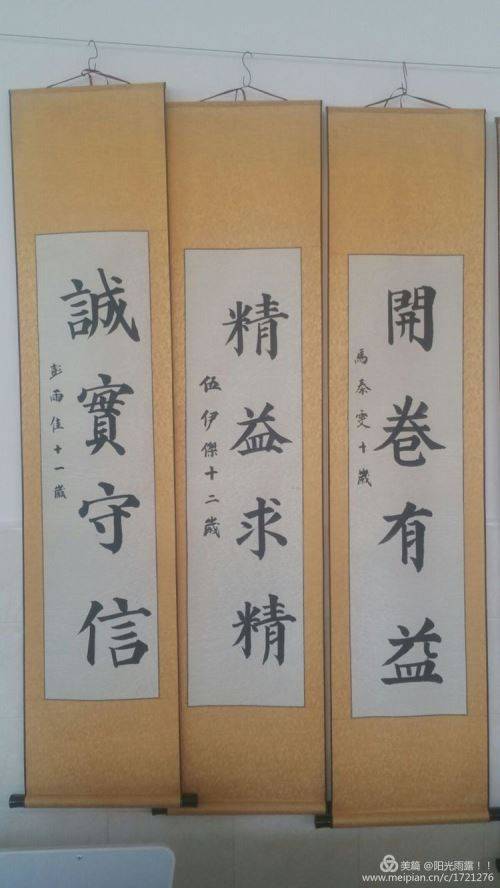 開卷有益
馬秦雯十歲
精益求精
伍伊傑十二歲
誠實守信
彭雨佳十一歲
美篇 @阳光雨露！！
www.meipian.cn/c/1721276